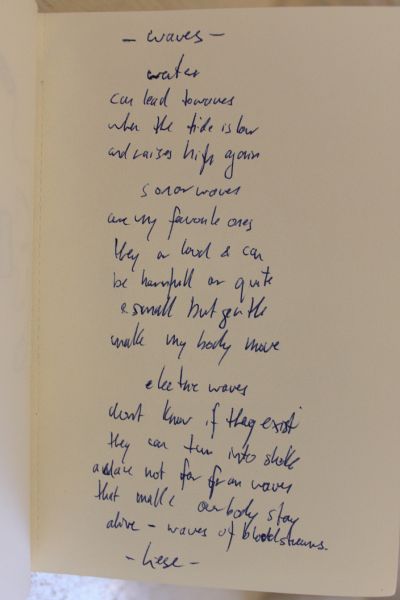 - waves -
water
can lead to waves
when the tide is low
and raises high again
sonor waves
are my favorite ones
they are loud & can
be harmfull or quite
& small but gentle
make my body move
electric waves
dont know if they exist
they can turn into shock
and are not far from waves
that make our body stay
alive - waves of bloodstreams.
- liese -